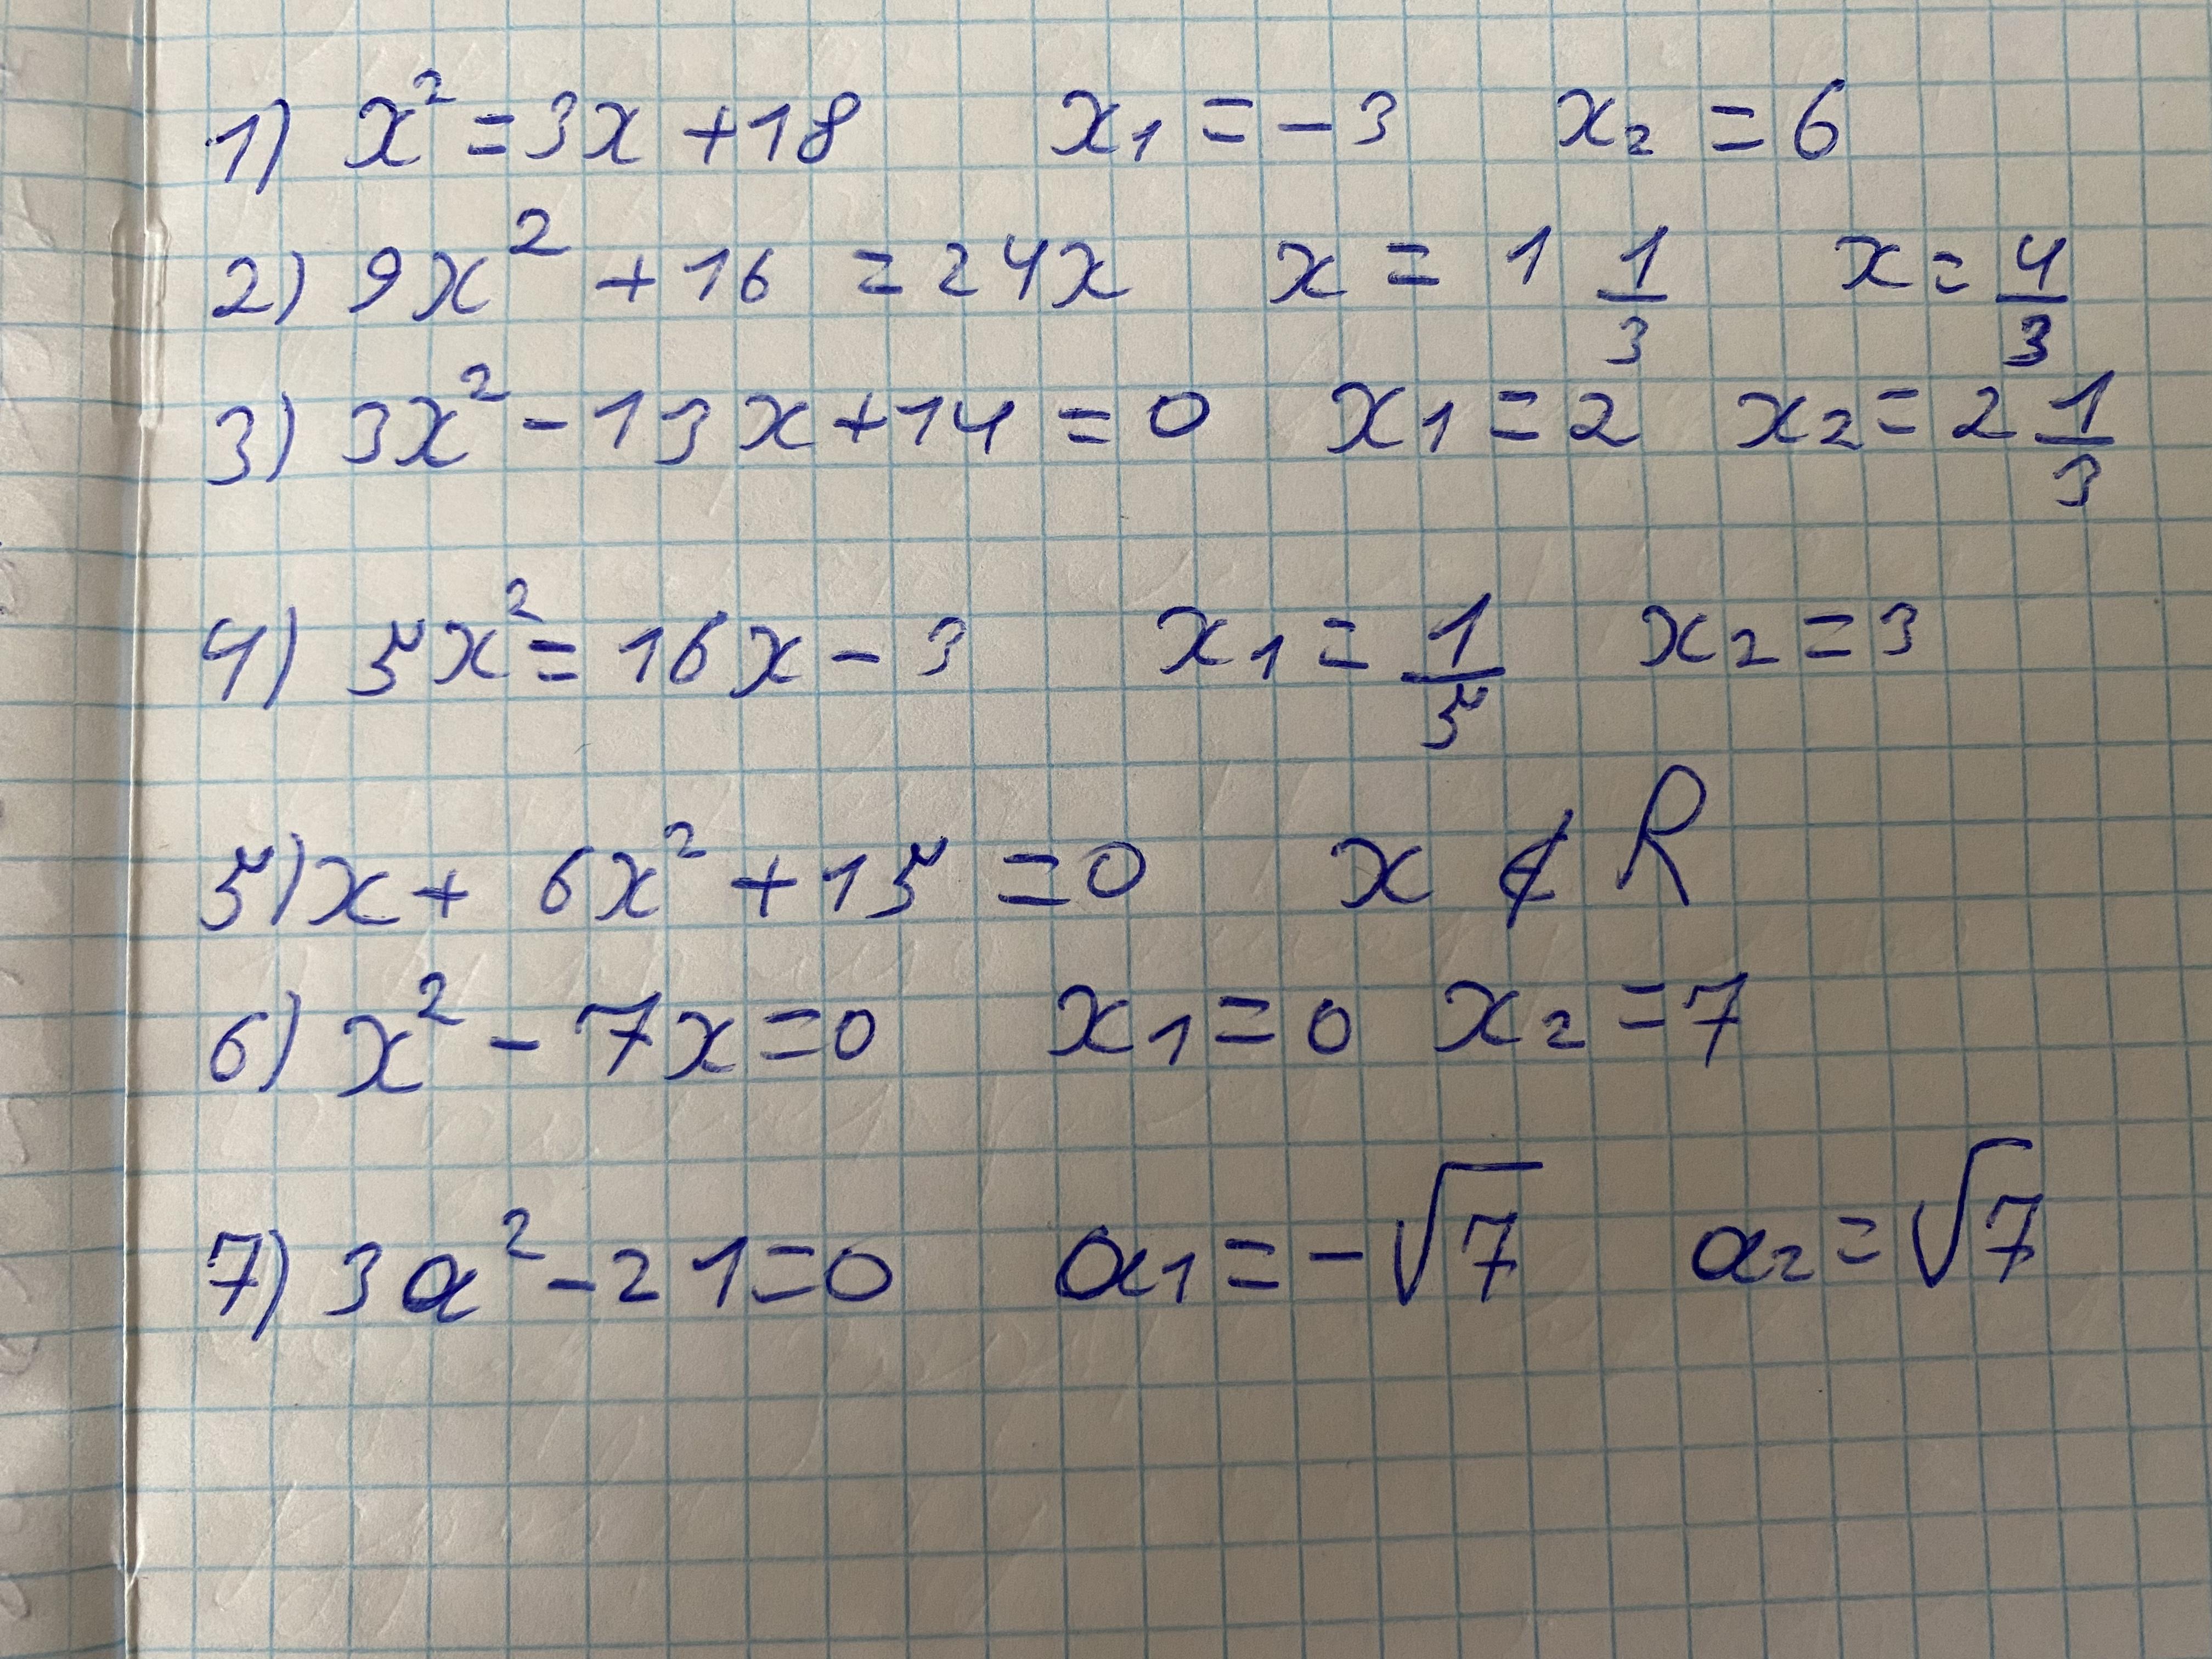 1) x² = 3x + 18 x₁ = -3 x₂ = 6
2) 9x² + 16 = 24x x = 1 1/3 x = 4/3
3) 3x² - 13x + 14 = 0 x₁ = 2 x₂ = 2 1/3
4) 5x² = 16x - 3 x₁ = 1/5 x₂ = 3
5) x + 6x² + 15 = 0 x ∉ R
6) x² - 7x = 0 x₁ = 0 x₂ = 7
7) 3a² - 21 = 0 a₁ = -√7 a₂ = √7